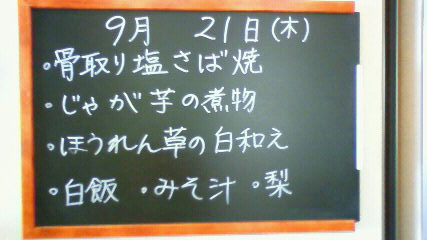 9月 21日(木)
・骨取り塩さば焼
・じゃが芋の煮物
・ほうれん草の白和え
・白飯 ・みそ汁 ・梨